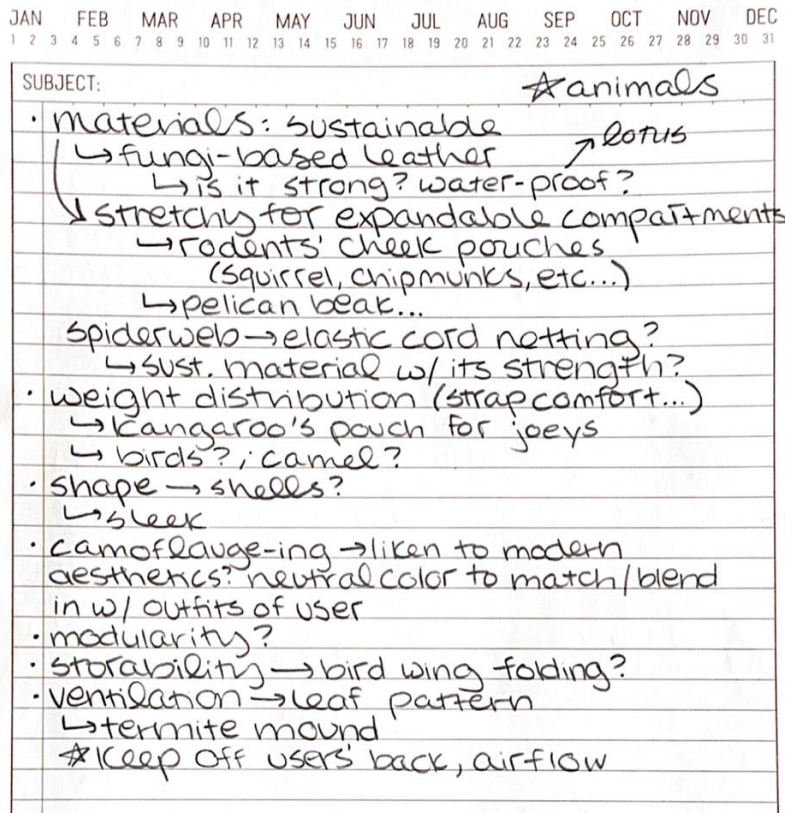 JAN FEB MAR APR MAY JUN JUL AUG SEP OCT NOV DEC
1 2 3 4 5 6 7 8 9 10 11 12 13 14 15 16 17 18 19 20 21 22 23 24 25 26 27 28 29 30 31
SUBJECT: ☆animals
· materials: sustainable
↗ lotus
↳fungi-based leather
↳is it strong? water-proof?
↳stretchy for expandable compartments
↳rodents' cheek pouches
(squirrel, chipmunks, etc...)
↳pelican beak...
spiderweb→elastic cord netting?
↳sust. material w/ its strength?
· weight distribution (strap comfort...)
↳kangaroo's pouch for joeys
↳ birds?, camel?
· shape → shells?
↳sleek
· camoflauge-ing →liken to modern
aesthetics? neutral color to match/blend
in w/ outfits of user
· modularity?
· storability→bird wing folding?
· ventilation→leaf pattern
↳termite mound
☆keep off users' back, airflow